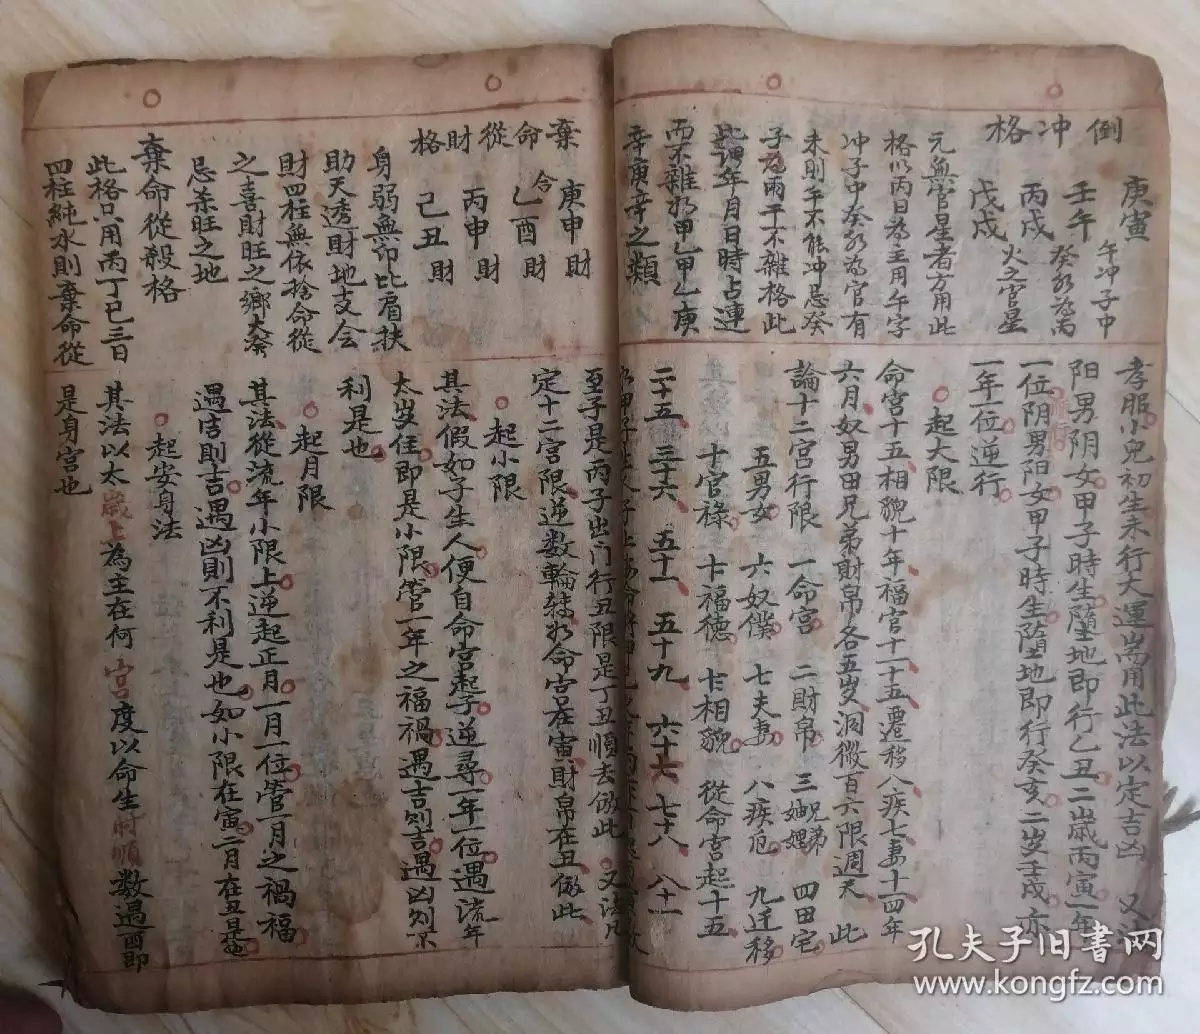 倒冲格
庚寅
壬午 午冲子中
丙戌 癸水為丙
戊戌 火之官星
元無官星者方用此
格以丙日為主用午字
冲子中癸水為官有
未則午不能冲忌癸
子為兩干不雜格此
此謂年月日時占連
而不雜如甲乙甲乙庚
辛庚辛之類
孝服小兒初生未行大運耑用此法以定吉凶 又法
阳男阴女甲子時生墮地即行乙丑二歲丙寅一年
一位阴男阳女甲子時生墮地即行癸亥二岁壬戌亦
一年一位逆行
起大限
命宮十五相貌十年福官十一十五遷移八疾七妻十四年
六月奴男田兄弟財帛各五岁洞微百六限週天 此
論十二宮行限 一命宮 二財帛 三兄弟妯娌 四田宅
五男女 六奴僕 七夫妻 八疾厄 九迁移
十官祿 十一福德 十二相貌 從命宮起十五
二十五 三十六 五十一 五十九 六十六 七十八 八十一
棄命從財格
庚申財
合 乙酉財
丙申財
己丑財
身弱無印比肩扶
助天透財地支会
財四柱無依捨命從
之喜財旺之鄉大發
忌杀旺之地
棄命從殺格
此格只用丙丁巳三日
四柱純水則棄命從
至子是丙子出门行丑限是丁丑順去倣此 又法凡
定十二宮限逆数輪轉如命宮在寅財帛在丑倣此
起小限
其法假如子生人便自命宮起子逆尋一年一位遇流年
太岁住即是小限管一年之福禍遇吉則吉遇凶則不
利是也
起月限
其法從流年小限上逆起正月一月一位管一月之禍福
遇吉則吉遇凶則不利是也如小限在寅二月在丑是也
起安身法
其法以太歲上為主在何宮度以命生時順数遇酉即
是身宮也
孔夫子旧書网
www.kongfz.com